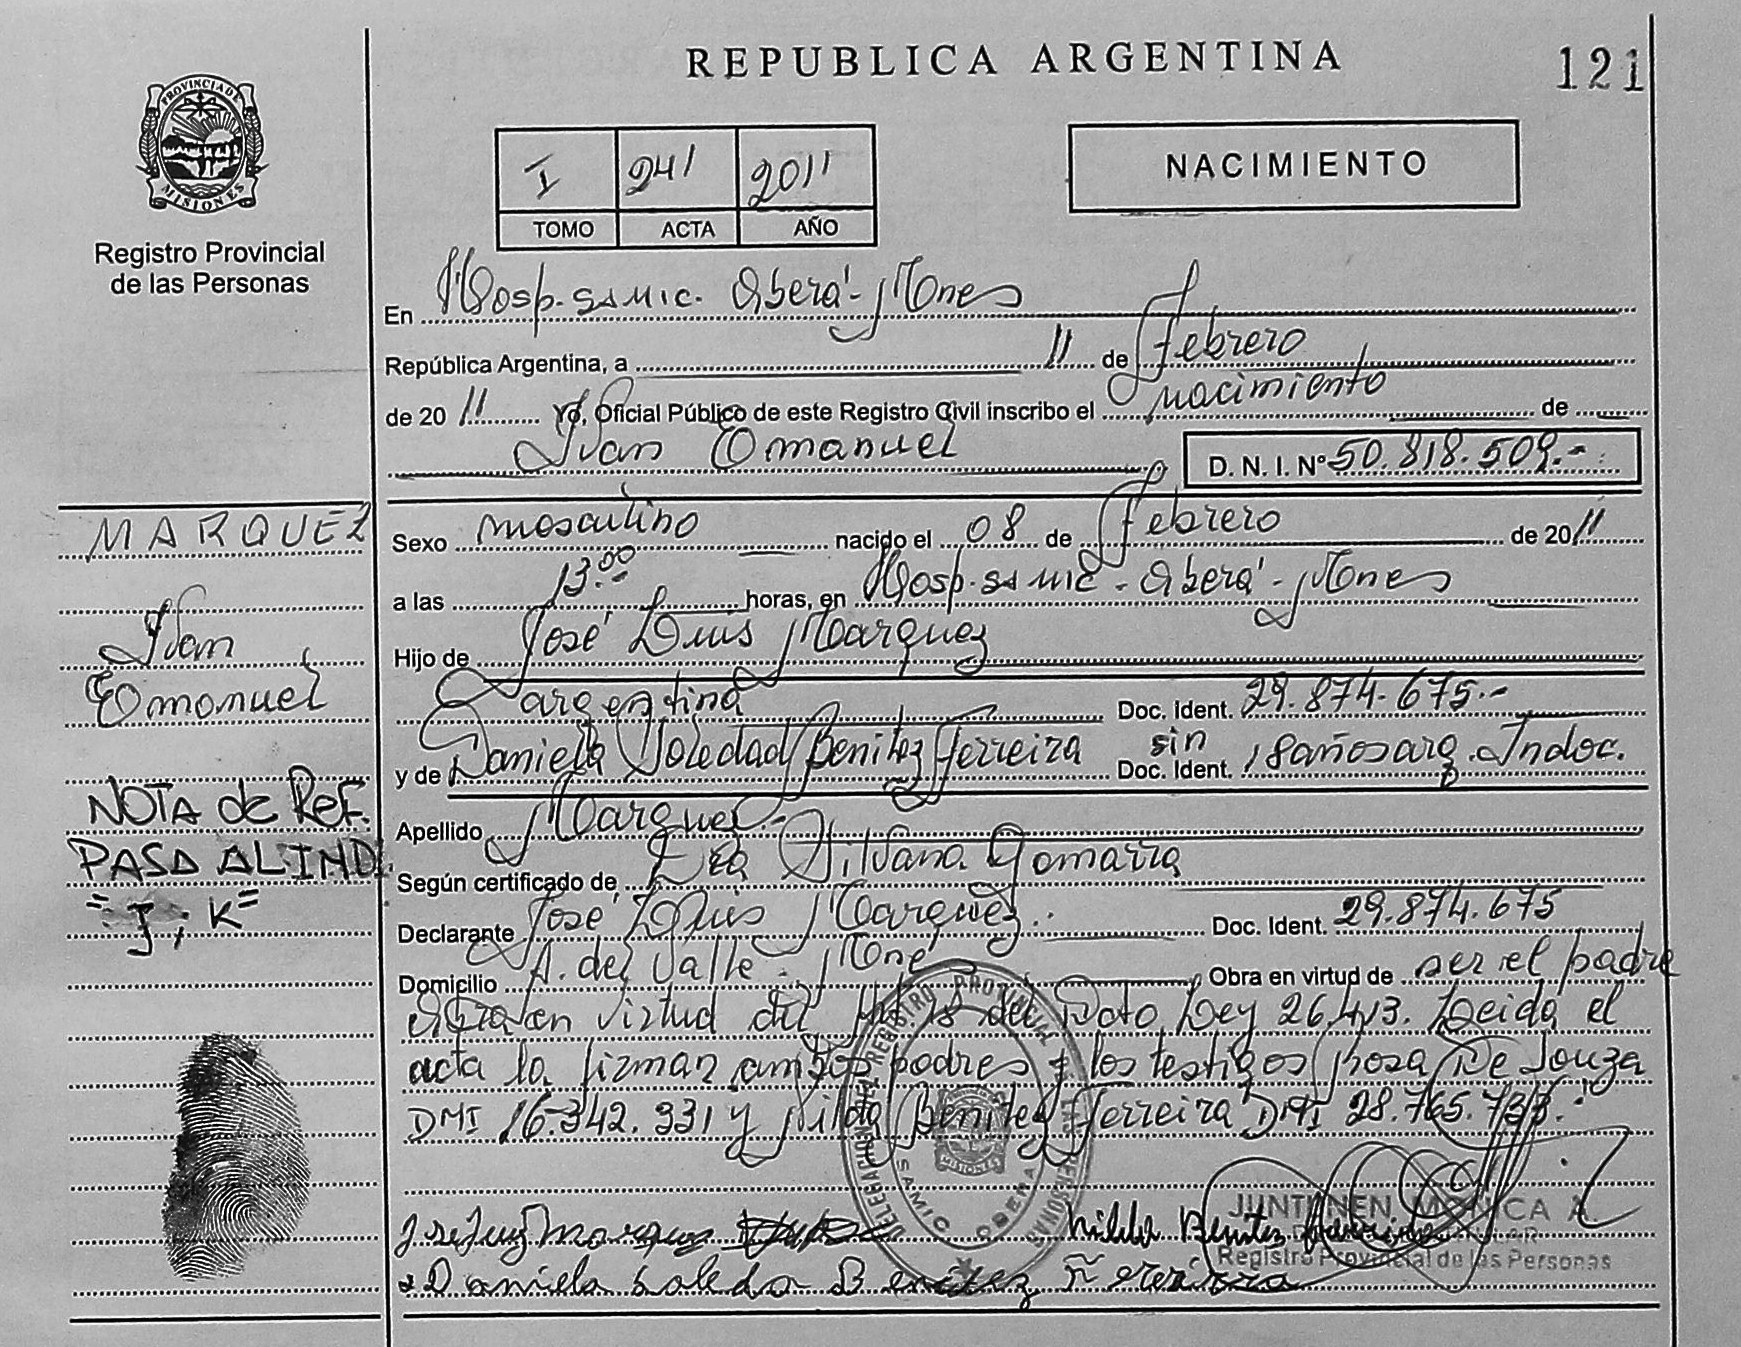 REPUBLICA ARGENTINA
121
PROVINCIA DE
MISIONES
Registro Provincial
de las Personas
I 241 2011
TOMO ACTA AÑO
NACIMIENTO
En Hosp. SAMIC. Oberá - Mnes
República Argentina, a 11 de Febrero
de 20 11 Yo, Oficial Público de este Registro Civil inscribo el nacimiento de
Ivan Emanuel D. N. I. Nº 50.818.509.-
MARQUEZ
Ivan
Emanuel
NOTA de Ref.
PASA AL IND.
= J ; K =
Sexo masculino nacido el 08 de Febrero de 20 11
a las 13.00 horas, en Hosp. SAMIC - Oberá - Mnes
Hijo de José Luis Marquez
argentina Doc. Ident. 29.874.675.-
y de Daniela Soledad Benitez Ferreira sin Doc. Ident. 18 años arg. Indoc.
Apellido Marquez.-
Según certificado de Dra Silvana Gomarra
Declarante José Luis Marquez. Doc. Ident. 29.874.675
Domicilio A. del Valle. Mnes Obra en virtud de ser el padre
Obra en virtud del del Dcto Ley 26.413. Leida el
acta la firman ambos padres y los testigos Rosa De Souza
DMI 16.342.331 y Nilda Benitez Ferreira DMI 28.765.733.-
REGISTRO PROVINCIAL DE LAS PERSONAS
DELEGACION
SAMIC OBERA
MISIONES
JUNTUNEN MONICA A.
Registro Provincial de las Personas
Jose Luiz Marquez
Nilda Benitez Ferreira
Daniela Soleda Benitez Fereirra